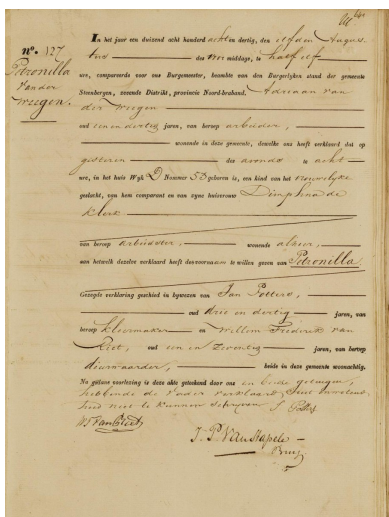 In het jaar een duizend acht honderd acht en dertig, den elfden Augus-
tus des voor middags, te half elf
nº. 127
Petronilla
van der
Weegen.
ure, compareerde voor ons Burgemeester, beambte van den Burgerlijken stand der gemeente
Steenbergen, zevende Distrikt, provincie Noord-braband, Adriaan van
der Weegen
oud een en dertig jaren, van beroep arbeider,
wonende in deze gemeente, dewelke ons heeft verklaard dat op
gisteren des avonds te acht
ure, in het huis Wyk D Nommer 53 geboren is, een kind van het vrouwelyke
geslacht, van hem comparant en van zyne huisvrouw Dimphna de
Klerk
van beroep arbeidster, wonende alhier,
aan hetwelk dezelve verklaard heeft de voornaam te willen geven van Petronilla.
Gezegde verklaring geschied in bywezen van Jan Potters,
oud drie en dertig jaren, van
beroep kleermaker en Willem Frederik van
Riet, oud een en zeventig jaren, van beroep
deurwaarder, beide in deze gemeente woonachtig.
Na gedane voorlezing is deze akte geteekend door ons en beide getuigen,
hebbende de vader verklaard
niet te kunnen schrijven J. Potters